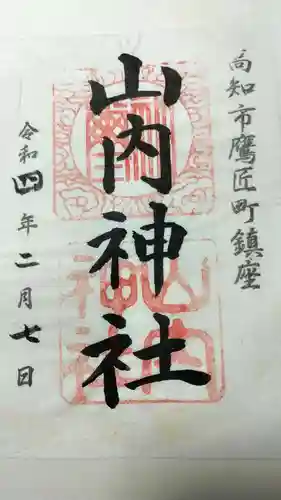 高知市鷹匠町鎮座
山内神社
令和四年二月七日